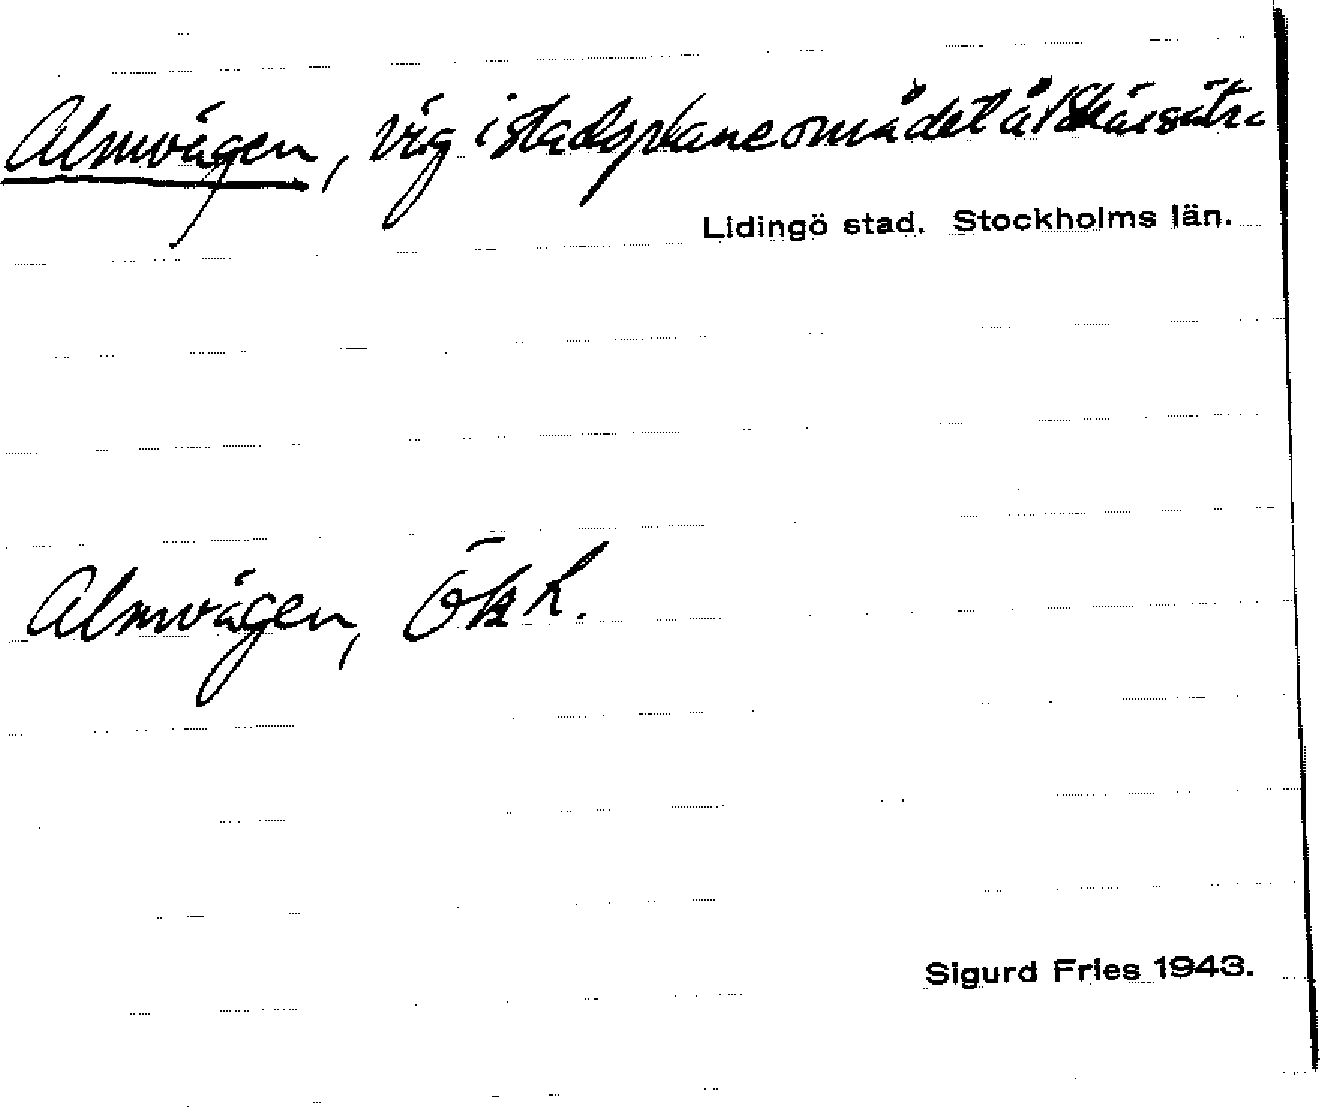 Almvägen, väg i stadsplaneområdet å Skärsätra
Lidingö stad. Stockholms län.
Almvägen, Ök L.
Sigurd Fries 1943.